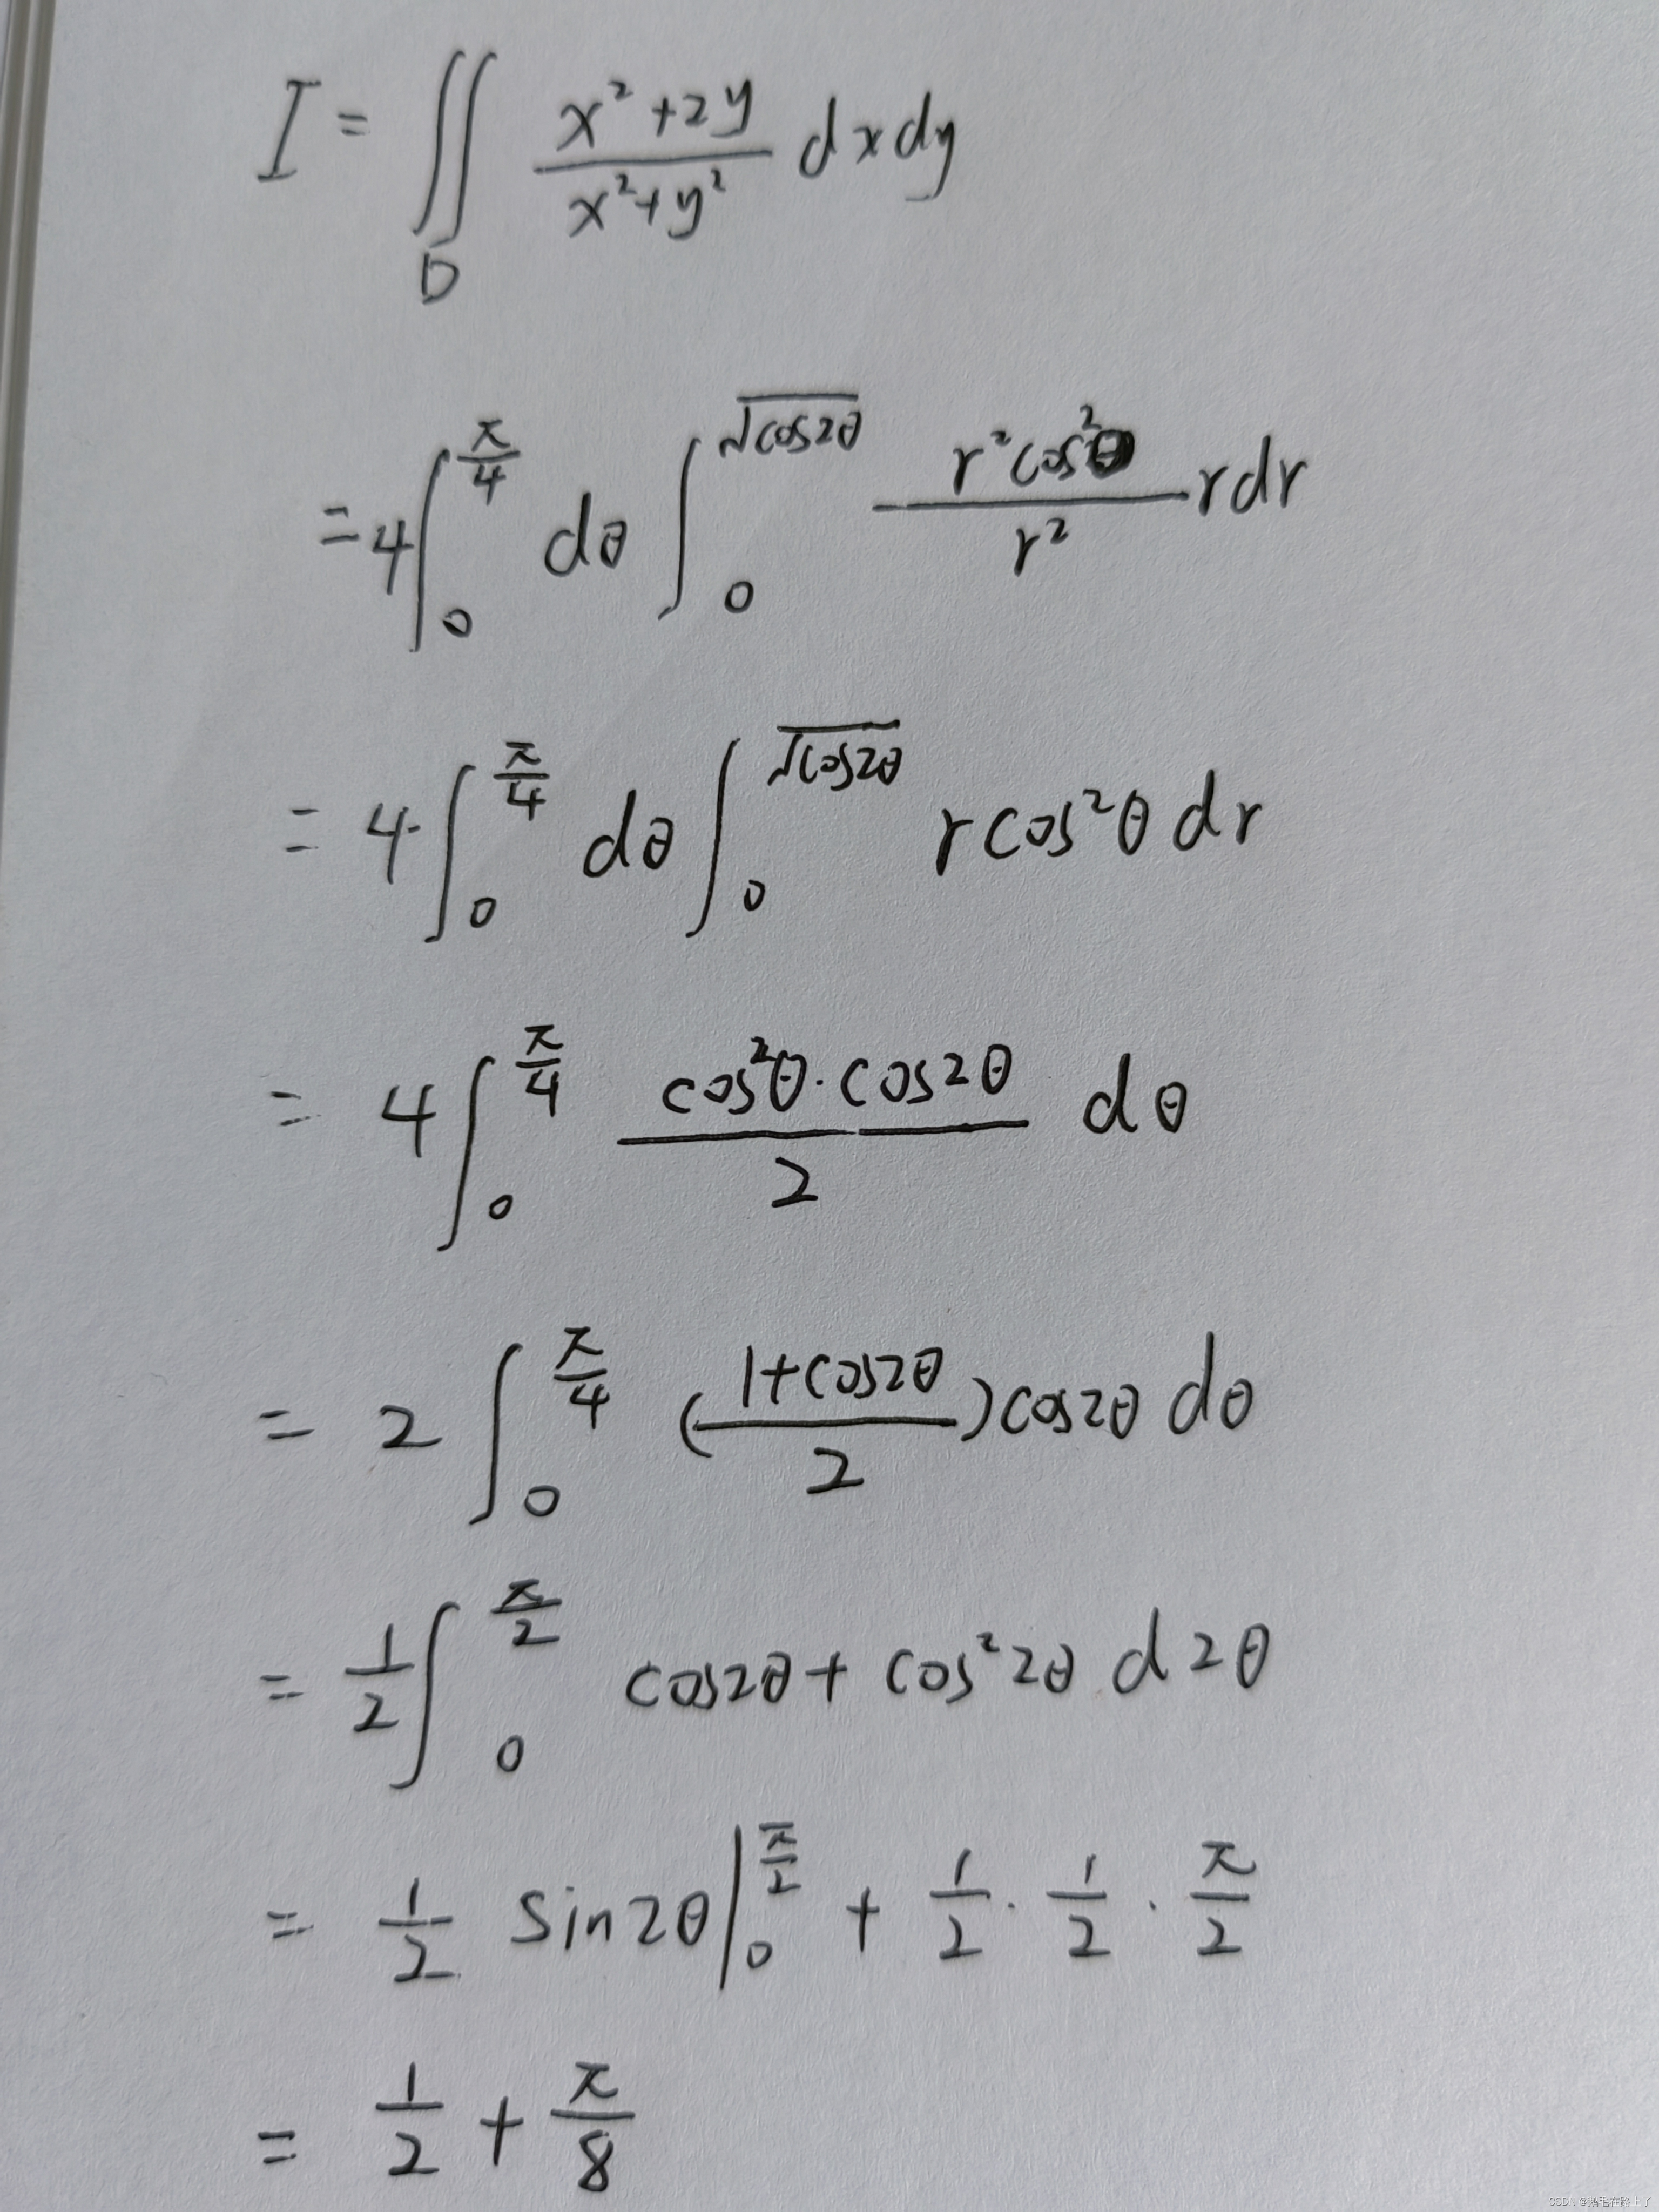 I = ∬_D (x²+2y)/(x²+y²) dxdy
= 4∫_0^{π/4} dθ ∫_0^{√cos2θ} (r²cos²θ)/r² rdr
= 4∫_0^{π/4} dθ ∫_0^{√cos2θ} r cos²θ dr
= 4∫_0^{π/4} (cos²θ·cos2θ)/2 dθ
= 2∫_0^{π/4} ((1+cos2θ)/2)cos2θ dθ
= 1/2 ∫_0^{π/2} cos2θ + cos²2θ d2θ
= 1/2 sin2θ|_0^{π/2} + 1/2 · 1/2 · π/2
= 1/2 + π/8
CSDN @鹅毛在路上了